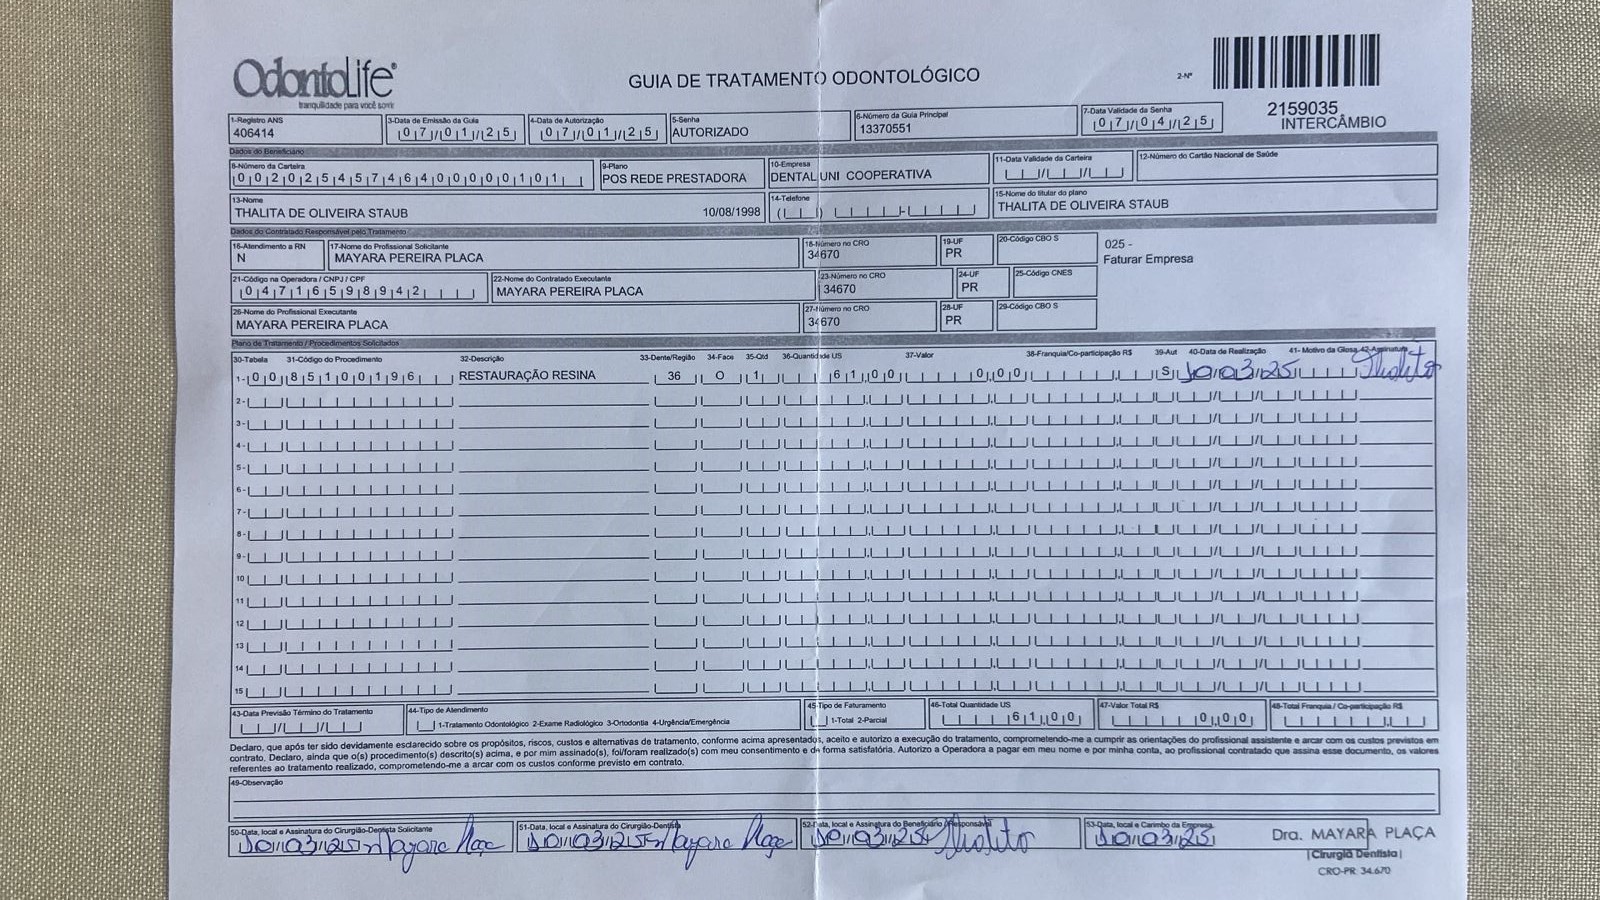 OdontoLife®
tranquilidade para você sorrir
GUIA DE TRATAMENTO ODONTOLÓGICO
2-Nº
2159035
INTERCÂMBIO
1-Registro ANS
406414
3-Data de Emissão da Guia
07/01/25
4-Data de Autorização
07/01/25
5-Senha
AUTORIZADO
6-Número da Guia Principal
13370551
7-Data Validade da Senha
07/04/25
Dados do Beneficiário
8-Número da Carteira
00202545746400000101
9-Plano
POS REDE PRESTADORA
10-Empresa
DENTAL UNI COOPERATIVA
11-Data Validade da Carteira
12-Número do Cartão Nacional de Saúde
13-Nome
THALITA DE OLIVEIRA STAUB 10/08/1998
14-Telefone
15-Nome do titular do plano
THALITA DE OLIVEIRA STAUB
Dados do Contratado Responsável pelo Tratamento
16-Atendimento a RN
N
17-Nome do Profissional Solicitante
MAYARA PEREIRA PLACA
18-Número no CRO
34670
19-UF
PR
20-Código CBO S
025 -
Faturar Empresa
21-Código na Operadora / CNPJ / CPF
04716598942
22-Nome do Contratado Executante
MAYARA PEREIRA PLACA
23-Número no CRO
34670
24-UF
PR
25-Código CNES
26-Nome do Profissional Executante
MAYARA PEREIRA PLACA
27-Número no CRO
34670
28-UF
PR
29-Código CBO S
Plano de Tratamento / Procedimentos Solicitados
30-Tabela 31-Código do Procedimento 32-Descrição 33-Dente/Região 34-Face 35-Qtd 36-Quantidade US 37-Valor 38-Franquia/Co-participação R$ 39-Aut 40-Data de Realização 41- Motivo da Glosa 42-Assinatura
1- 00 85100196 RESTAURAÇÃO RESINA 36 O 1 61,00 0,00 S 10/03/25 Thalita
2-
3-
4-
5-
6-
7-
8-
9-
10
11
12
13
14
15
43-Data Previsão Término do Tratamento
44-Tipo de Atendimento
1-Tratamento Odontológico 2-Exame Radiológico 3-Ortodontia 4-Urgência/Emergência
45-Tipo de Faturamento
1-Total 2-Parcial
46-Total Quantidade US
61,00
47-Valor Total R$
0,00
48-Total Franquia / Co-participação R$
Declaro, que após ter sido devidamente esclarecido sobre os propósitos, riscos, custos e alternativas de tratamento, conforme acima apresentados, aceito e autorizo a execução do tratamento, comprometendo-me a cumprir as orientações do profissional assistente e arcar com os custos previstos em
contrato. Declaro, ainda que o(s) procedimento(s) descrito(s) acima, e por mim assinado(s), foi/foram realizado(s) com meu consentimento e de forma satisfatória. Autorizo a Operadora a pagar em meu nome e por minha conta, ao profissional contratado que assina esse documento, os valores
referentes ao tratamento realizado, comprometendo-me a arcar com os custos conforme previsto em contrato.
49-Observação
50-Data, local e Assinatura do Cirurgião-Dentista Solicitante
10/03/25 Mayara Placa
51-Data, local e Assinatura do Cirurgião-Dentista
10/03/25 Mayara Placa
52-Data, local e Assinatura do Beneficiário / Responsável
10/03/25 Thalita
53-Data, local e Carimbo da Empresa
10/03/25
Dra. MAYARA PLAÇA
Cirurgiã Dentista
CRO-PR 34.670